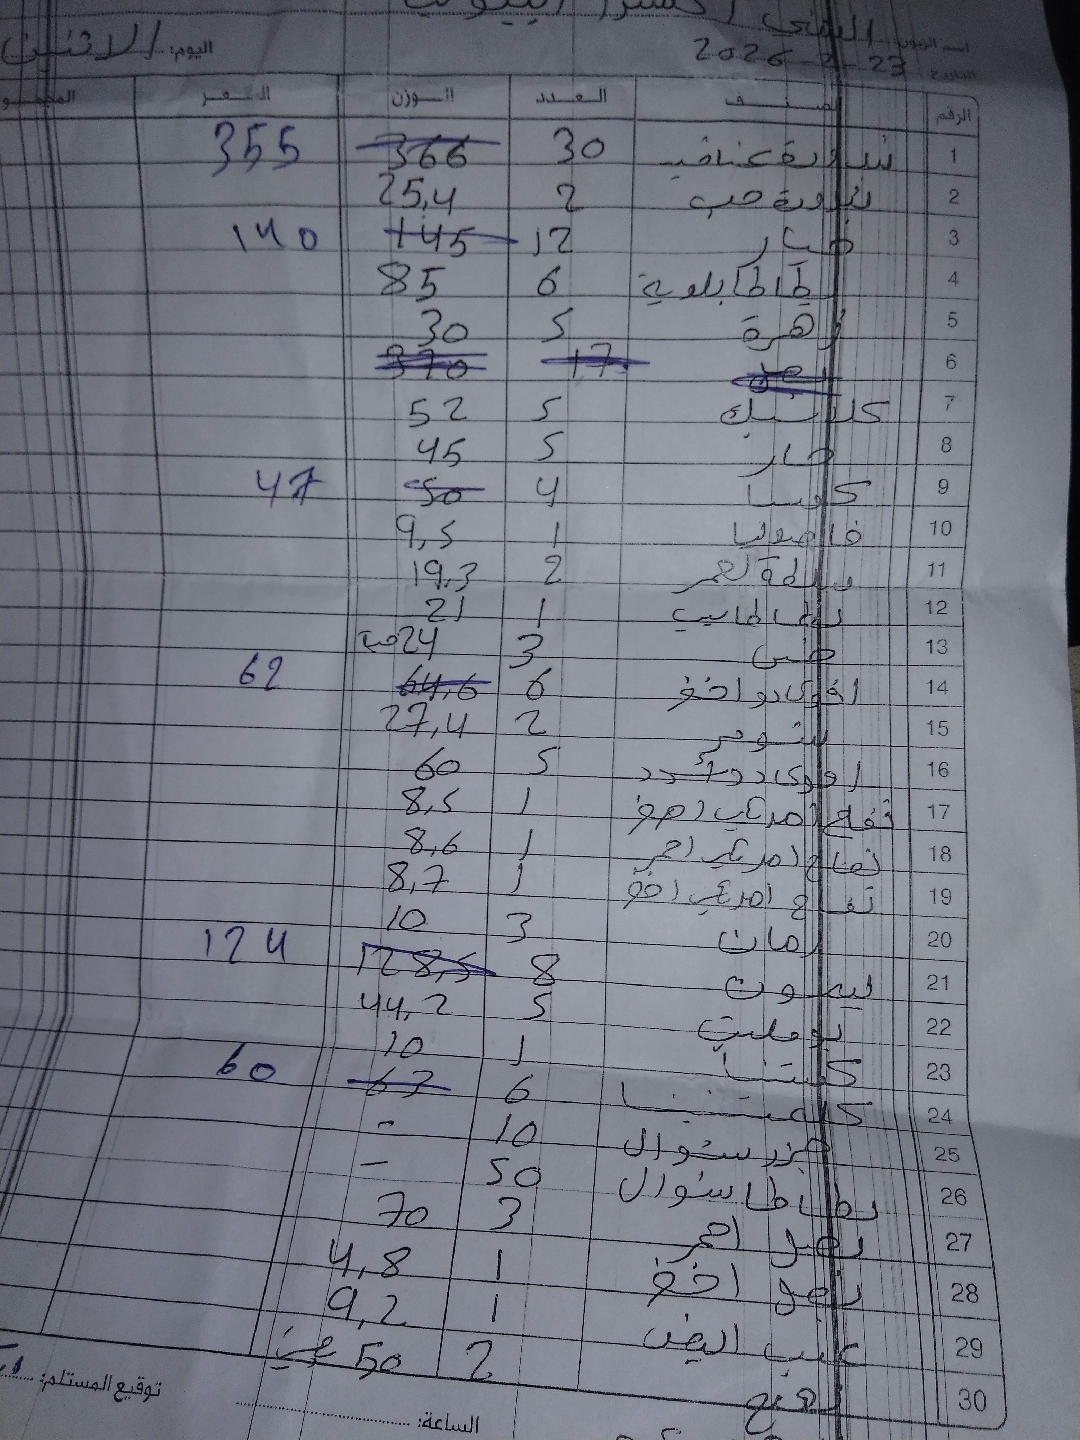 اسم الزبون: اليمني اخضر
التاريخ: 23-2-2026 اليوم: الاثنين
الرقم الصنف العدد الوزن السعر
1 بندورة عناقيد 30 366 355
2 بندورة حب 2 25,4
3 خيار 12 145 140
4 6 85
5 زهرة 5 30
6 بصل 17 370
7 5 52
8 حار 5 45
9 كوسا 4 50 47
10 فاصوليا 1 9,5
11 2 19,3
12 بطاطا بيبي 1 21
13 خس 3 24 حبة
14 افوكادو اخضر 6 64,6 62
15 2 27,4
16 افوكادو 5 60
17 تفاح امريكي اصفر 1 8,5
18 تفاح امريكي احمر 1 8,6
19 تفاح امريكي اخضر 1 8,7
20 رمان 3 10
21 ليمون 8 128,5 124
22 بوملي 5 44,2
23 كستنا 1 10
24 كلمنتينا 6 67 60
25 جزر شوال 10 -
26 بطاطا شوال 50 -
27 بصل احمر 3 70
28 بصل اخضر 1 4,8
29 عنب ابيض 1 9,2
30 2 50
الساعة: توقيع المستلم: